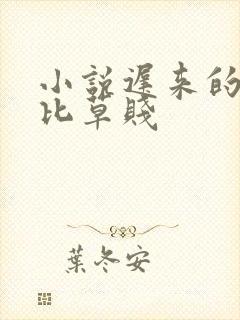 小說遲来的
比草賤
葉冬安